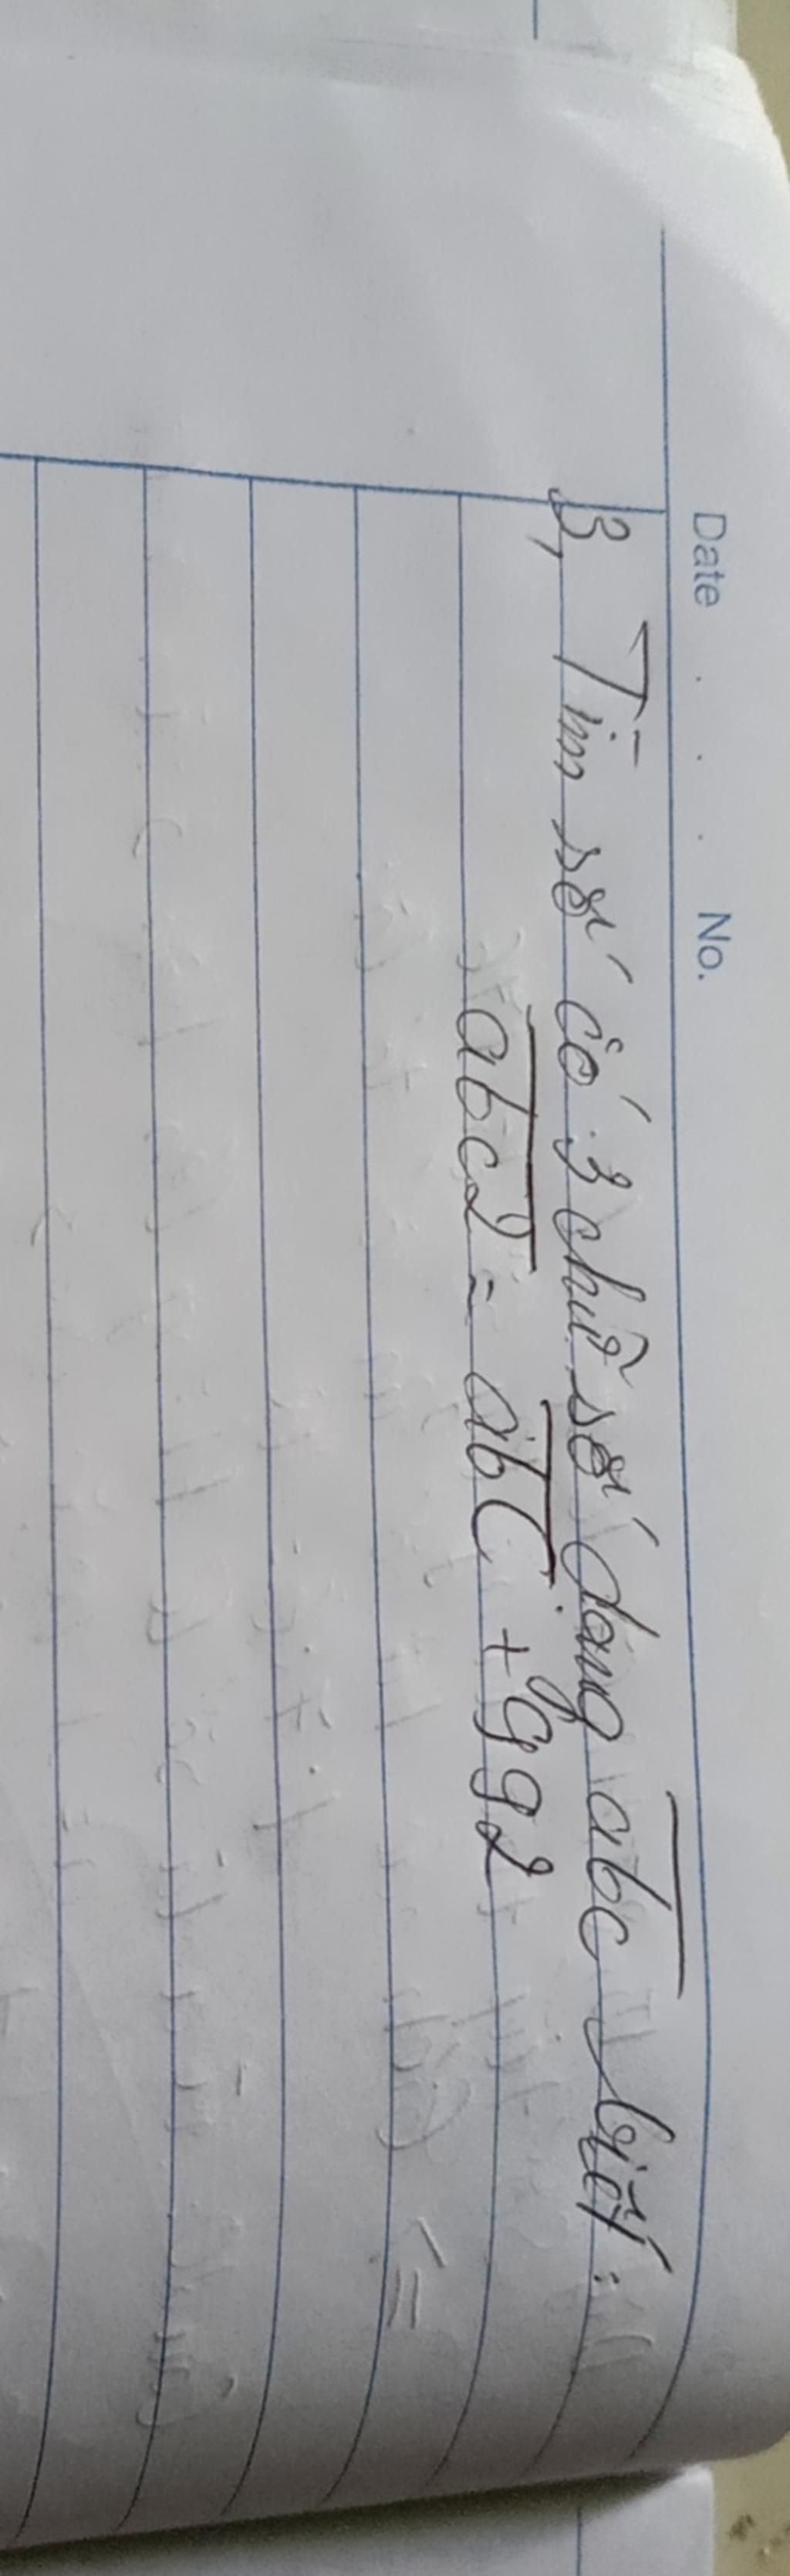 Date . . . No.
3, Tìm số có 3 chữ số dạng a̅b̅c̅ biết:
a̅b̅c̅2̅ = a̅b̅c̅ + 992